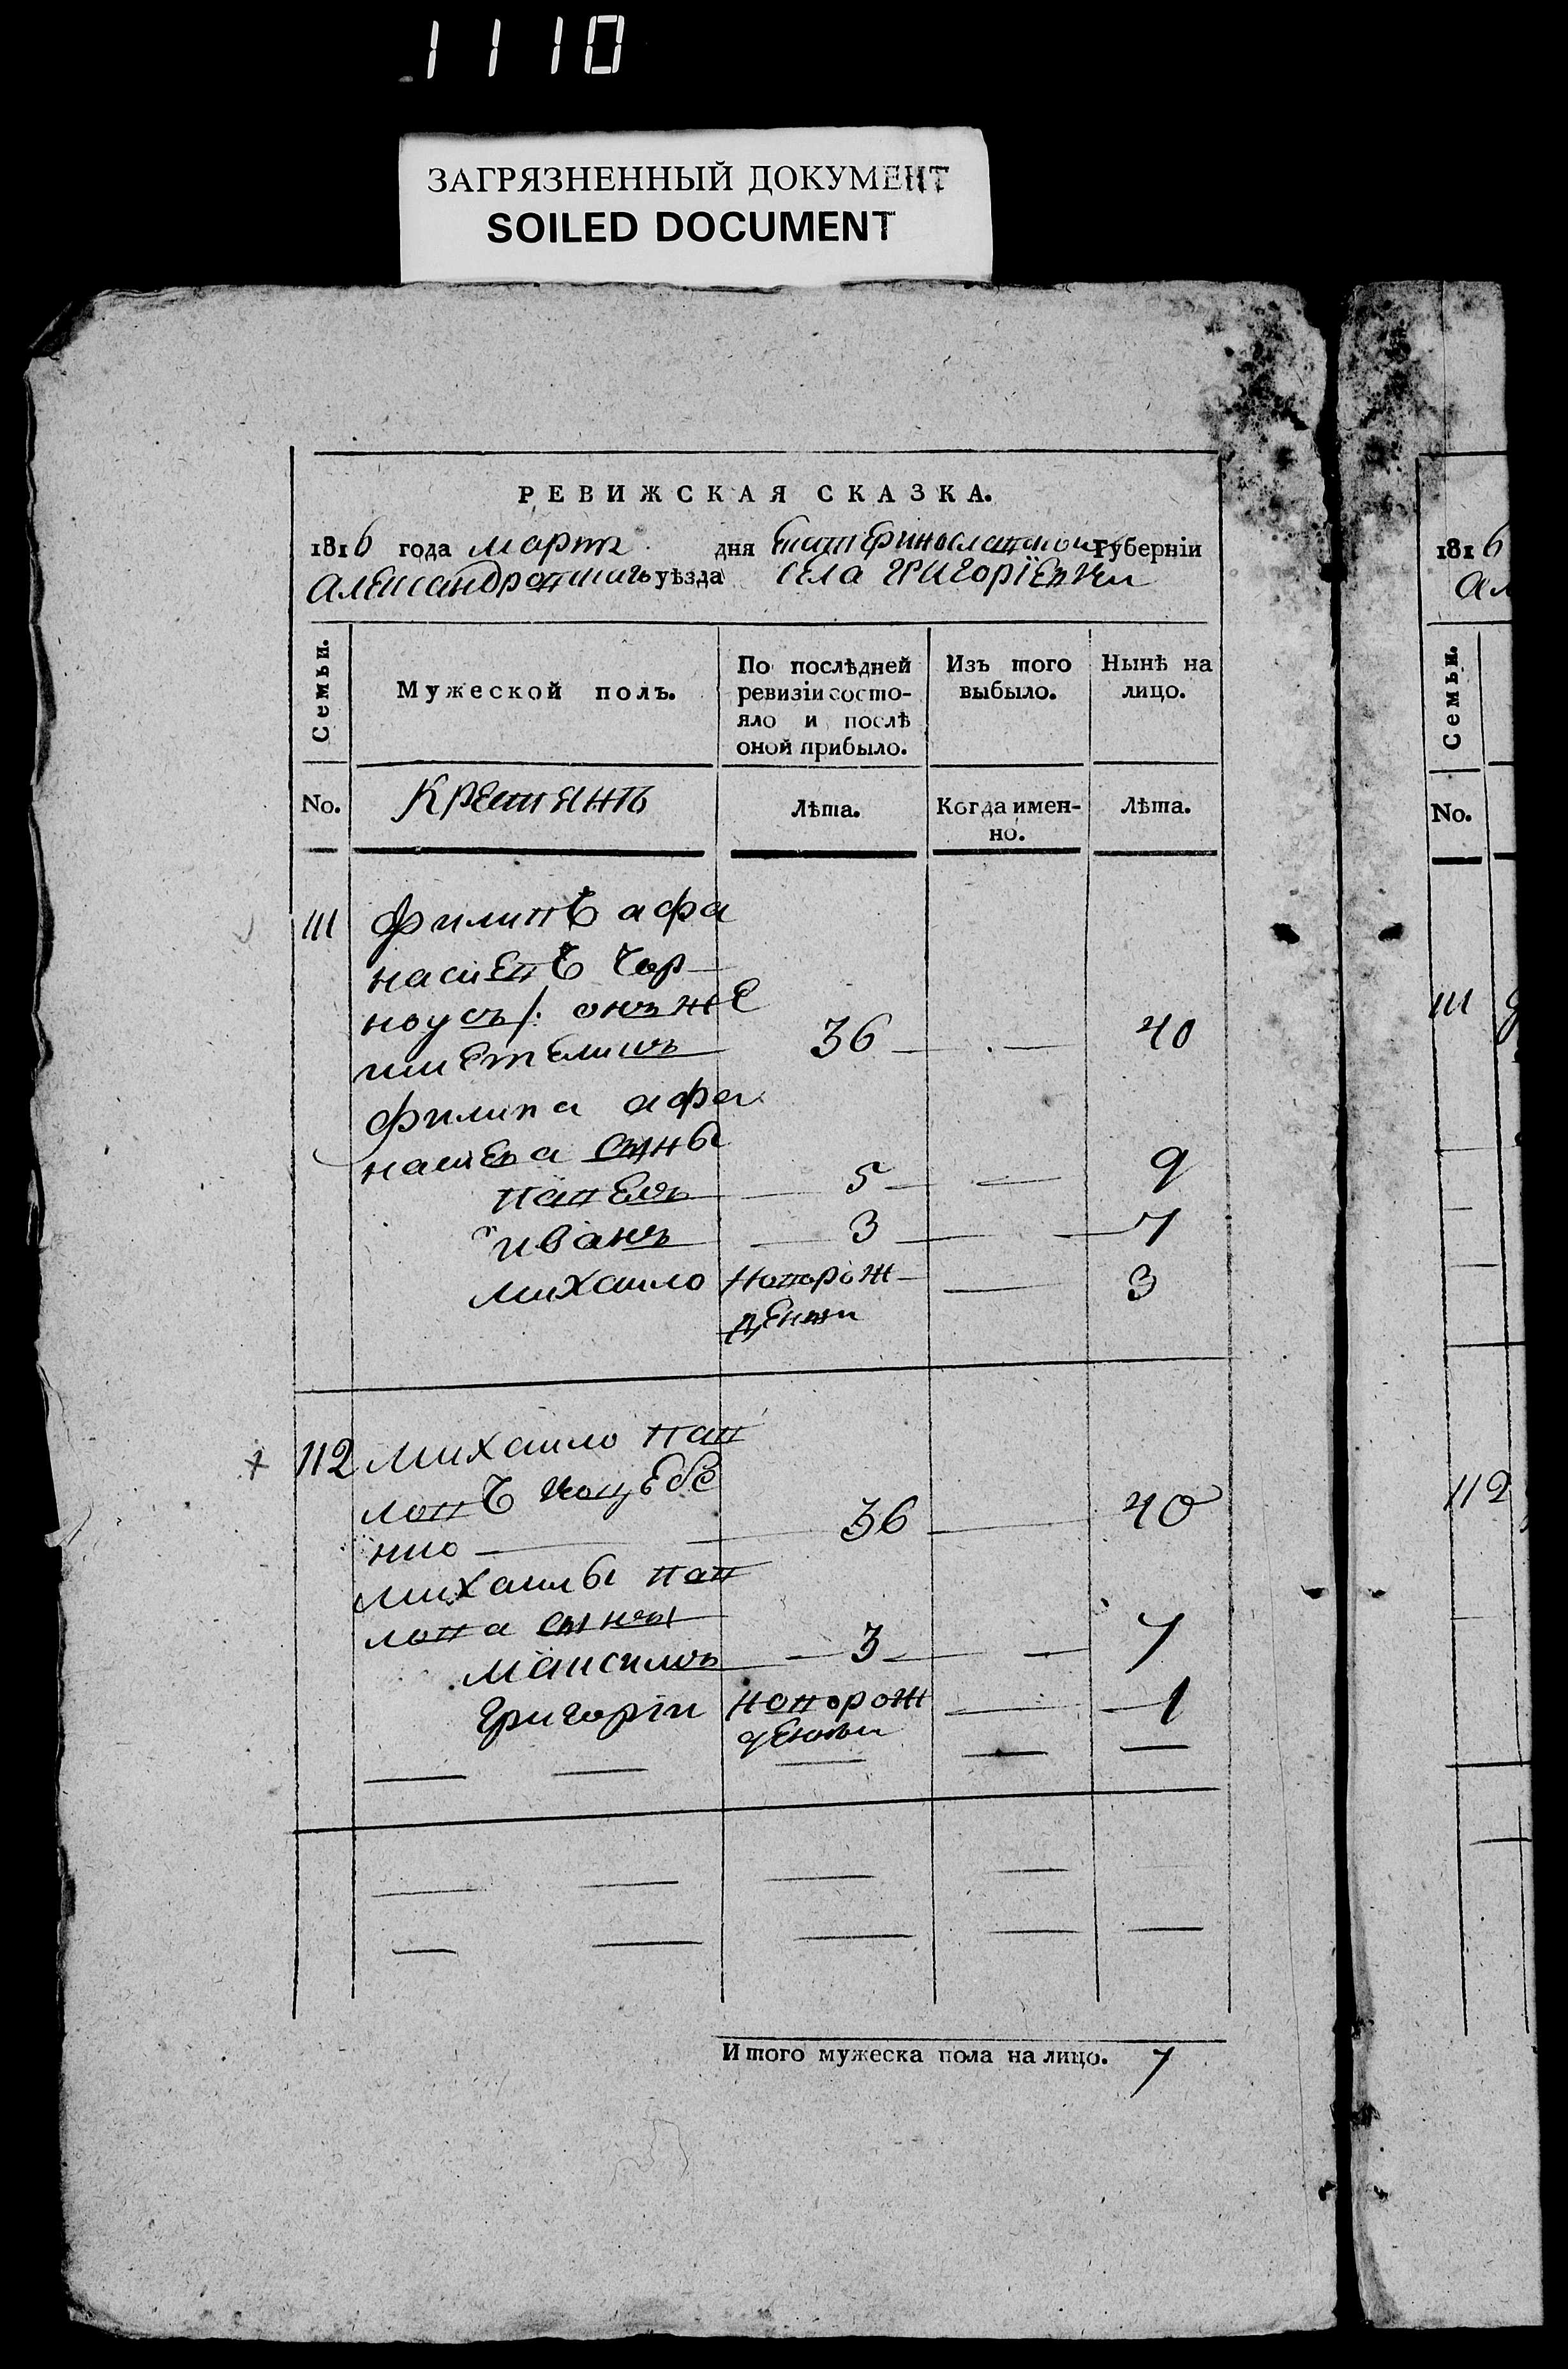 1110
ЗАГРЯЗНЕННЫЙ ДОКУМЕНТ
SOILED DOCUMENT
РЕВИЖСКАЯ СКАЗКА.
1816 года марта дня Екатеринославской Губернiи
Александровскаго уѣзда села Григорiевки
Семьи. Мужеской полъ. По послѣдней ревизiи состо-
яло и послѣ
оной прибыло. Изъ того
выбыло. Нынѣ на
лицо.
No. Крестьянъ Лѣта. Когда имен-
но. Лѣта.
111 Филипъ афа
насиевъ Чор
ноусъ /: онъ же
36 40
Филипа афа
насиева сыны
павелъ 5 9
иванъ 3 7
михаило новорож
денни 3
112 михаило пав
ловъ Коцюбе
нко 36 40
михаилы пав
лова сыны
максимъ 3 7
григорiи новорож
денни 1
Итого мужеска пола на лицо. 7
1816
Ал
Семьи.
No.
111
112